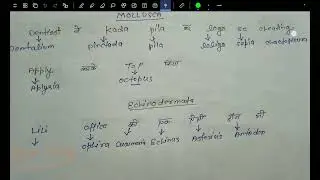 MOLLUSCA
Dentist ने kada pila के logo se cheating
Dentalium pinctada pila loligo sepia chaetopleura
Apply करके Top किया
Aplysia octopus
Echinodermata
Lili office की एक ऐसी
ophiura cucumaria Echinus Asterias Antedon